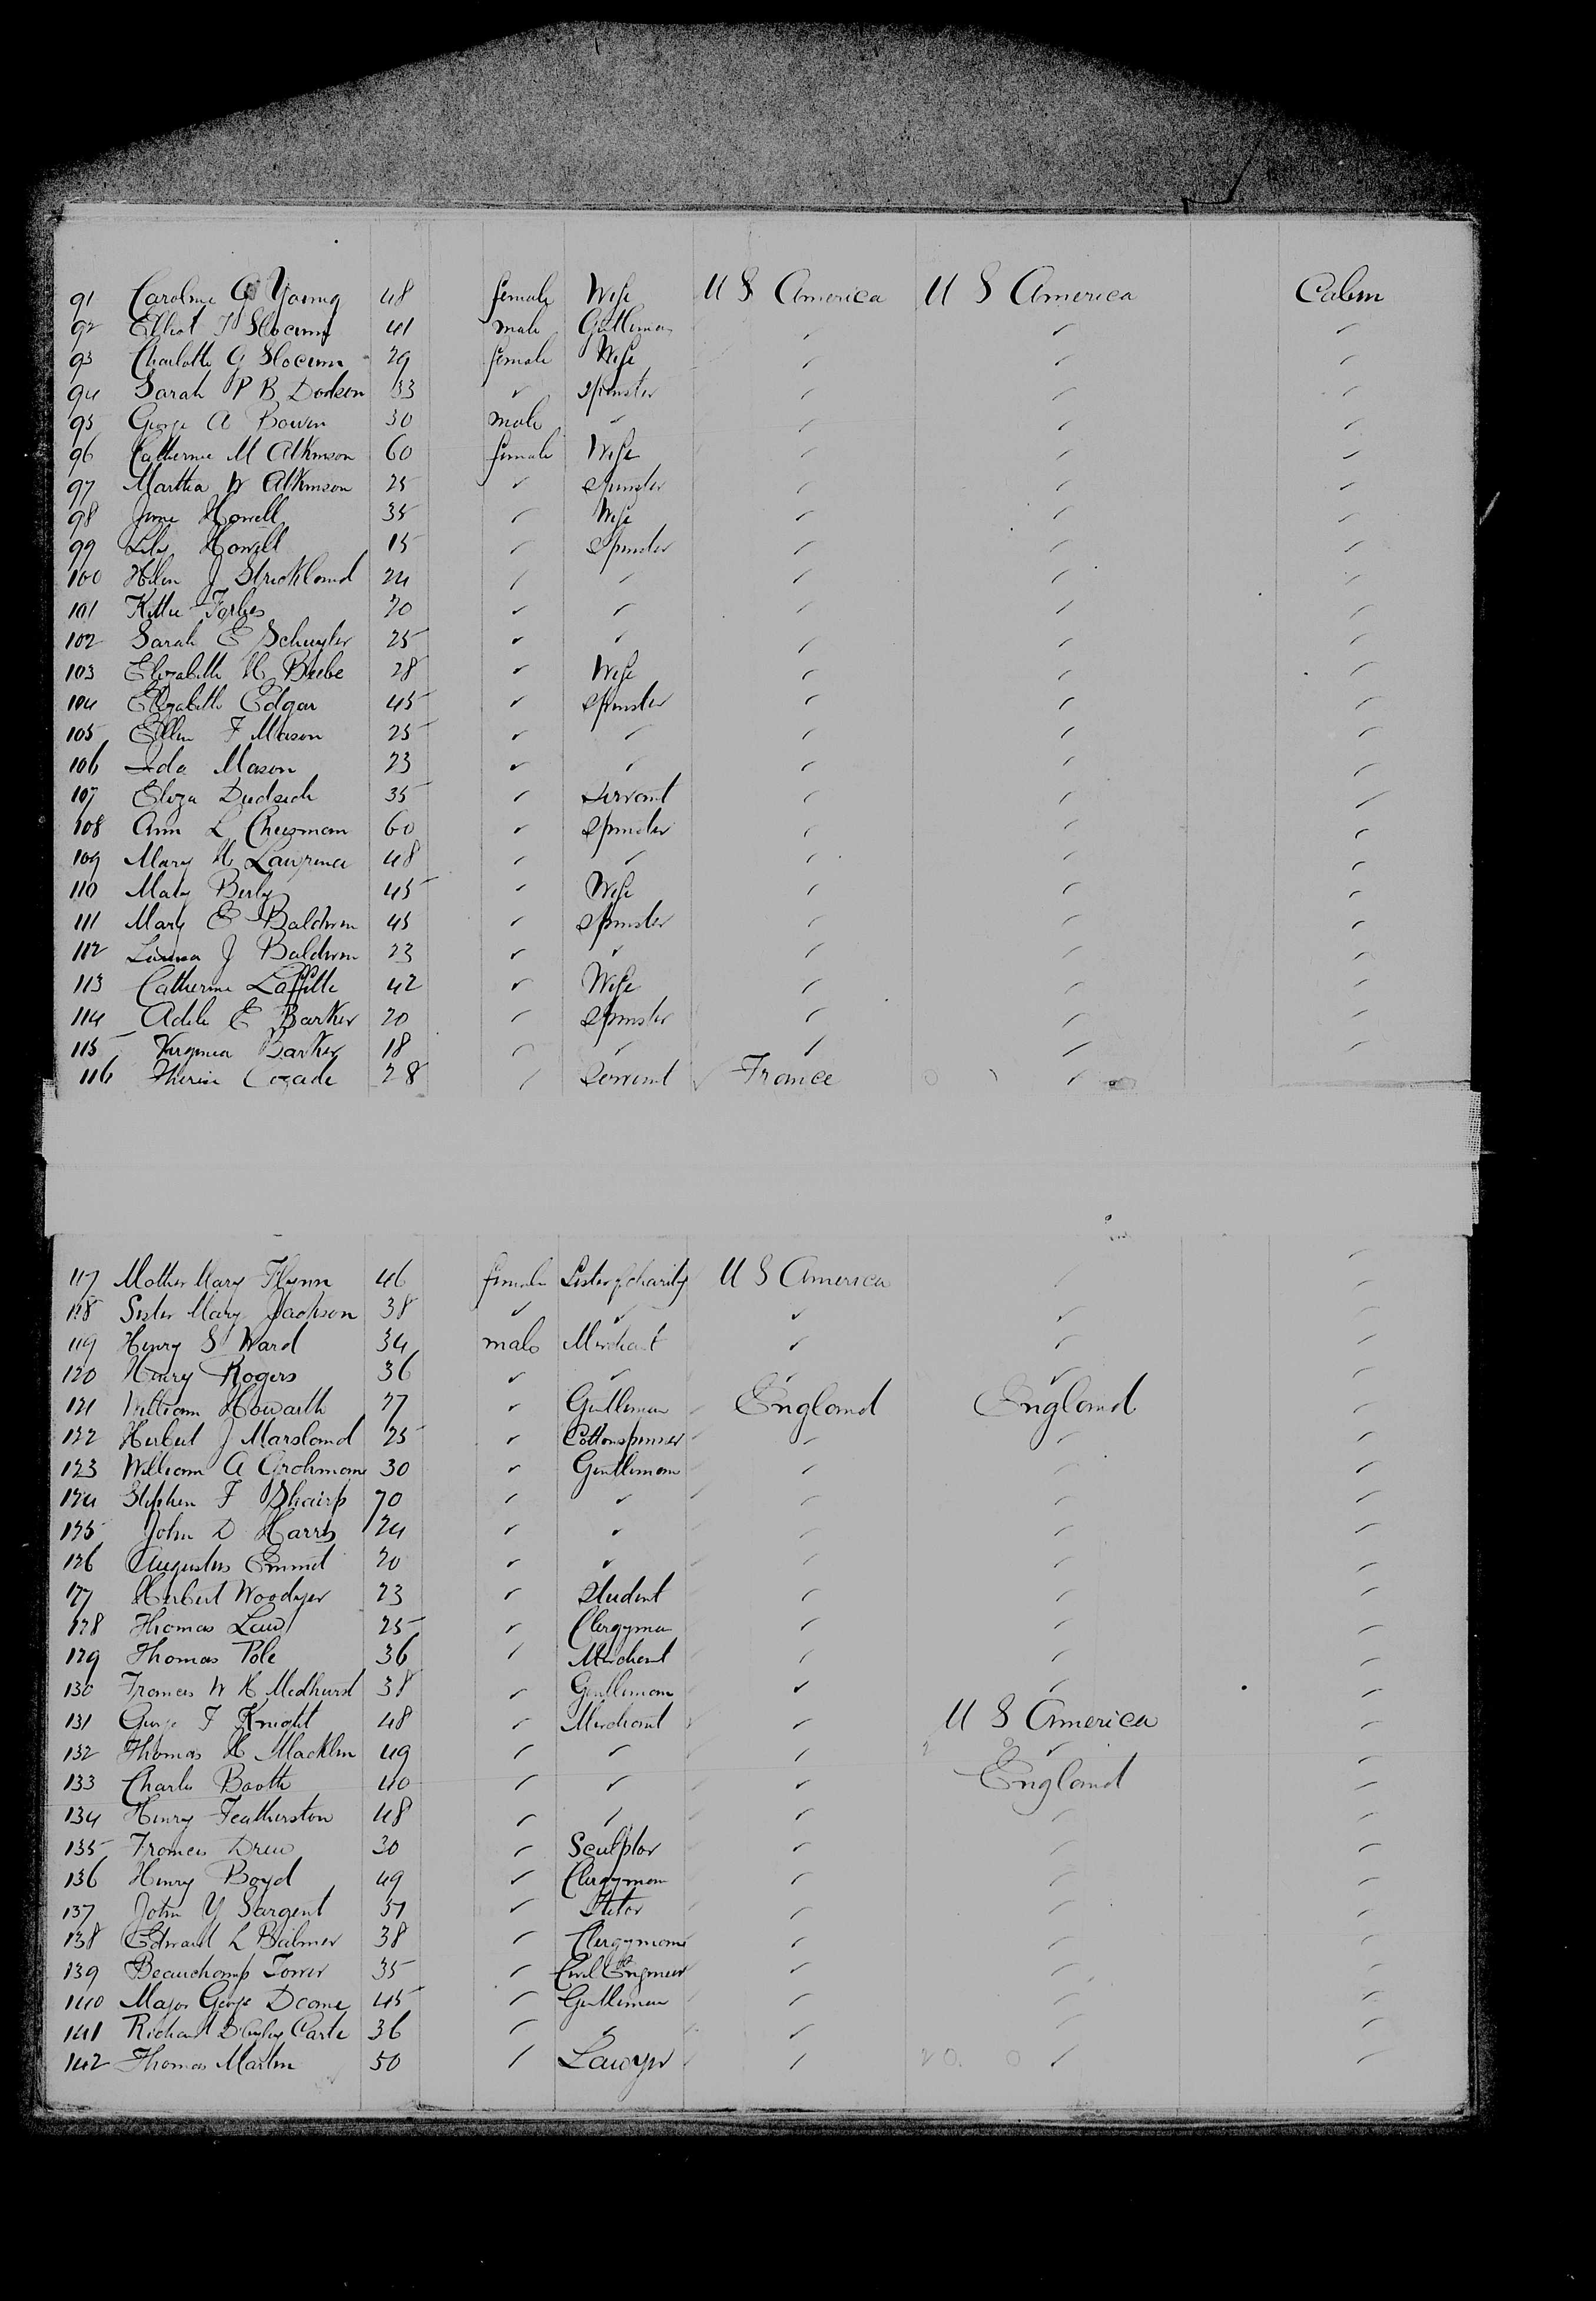 91 Caroline G Young 48 female Wife U S America U S America Cabin
92 Elliot F Slocum 41 male Gentleman ✓ ✓ ✓
93 Charlotte G Slocum 29 female Wife ✓ ✓ ✓
94 Sarah P B Dodson 33 ✓ Spinster ✓ ✓ ✓
95 George A Bowen 30 male ✓ ✓ ✓ ✓
96 Catherine M Atkinson 60 female Wife ✓ ✓ ✓
97 Martha W Atkinson 25 ✓ Spinster ✓ ✓ ✓
98 Howell 35 ✓ Wife ✓ ✓ ✓
99 Howell 15 ✓ Spinster ✓ ✓ ✓
100 Helen J Strickland 24 ✓ ✓ ✓ ✓ ✓
101 Kittie Forbes 20 ✓ ✓ ✓ ✓ ✓
102 Sarah E Schuyler 25 ✓ ✓ ✓ ✓ ✓
103 Elizabeth H Beebe 28 ✓ Wife ✓ ✓ ✓
104 Elizabeth Edgar 45 ✓ Spinster ✓ ✓ ✓
105 Ellen F Mason 25 ✓ ✓ ✓ ✓ ✓
106 Ida Mason 23 ✓ ✓ ✓ ✓ ✓
107 Eliza 35 ✓ Servant ✓ ✓ ✓
108 Ann L Cheesman 60 ✓ Spinster ✓ ✓ ✓
109 Mary H Lawrence 48 ✓ ✓ ✓ ✓ ✓
110 Mary 45 ✓ Wife ✓ ✓ ✓
111 Mary E Baldwin 45 ✓ Spinster ✓ ✓ ✓
112 Louisa J Baldwin 23 ✓ ✓ ✓ ✓ ✓
113 Catherine Laffitte 42 ✓ Wife ✓ ✓ ✓
114 Adele E Barker 20 ✓ Spinster ✓ ✓ ✓
115 Virginia Barker 18 ✓ ✓ ✓ ✓ ✓
116 28 ✓ Servant France ✓
117 Mother Mary Flynn 46 female Sister of charity U S America ✓ ✓
118 Sister Mary Jackson 38 ✓ ✓ ✓ ✓ ✓
119 Henry S Ward 34 male Merchant ✓ ✓ ✓
120 Henry Rogers 36 ✓ ✓ ✓ ✓ ✓
121 William Howarth 27 ✓ Gentleman England England ✓
122 Herbert J Marsland 25 ✓ Cottonspinner ✓ ✓ ✓
123 William A Grohmann 30 ✓ Gentleman ✓ ✓ ✓
124 Stephen F Shairp ✓ ✓ ✓ ✓ ✓
125 John D Harris 24 ✓ ✓ ✓ ✓ ✓
126 Augustus 20 ✓ ✓ ✓ ✓ ✓
127 Herbert Woodyer 23 ✓ Student ✓ ✓ ✓
128 Thomas Law 25 ✓ Clergyman ✓ ✓ ✓
129 Thomas Pole 36 ✓ Merchant ✓ ✓ ✓
130 Francis W H Medhurst 38 ✓ Gentleman ✓ ✓ ✓
131 George F Knight 48 ✓ Merchant ✓ U S America ✓
132 Thomas H Macklin 49 ✓ ✓ ✓ ✓ ✓
133 Charles Booth 40 ✓ ✓ ✓ England ✓
134 Henry Featherston 48 ✓ ✓ ✓ ✓ ✓
135 Francis Drew 30 ✓ Sculptor ✓ ✓ ✓
136 Henry Boyd 49 ✓ Clergyman ✓ ✓ ✓
137 John Y Sargent 51 ✓ ✓ ✓ ✓
138 Edward L Balmer 38 ✓ Clergyman ✓ ✓ ✓
139 Beauchamp Tower 35 ✓ Civil Engineer ✓ ✓ ✓
140 Major George Doane 45 ✓ Gentleman ✓ ✓ ✓
141 Richard D'Oyly Carte 36 ✓ ✓ ✓ ✓ ✓
142 Thomas Martin 50 ✓ Lawyer ✓ ✓ ✓